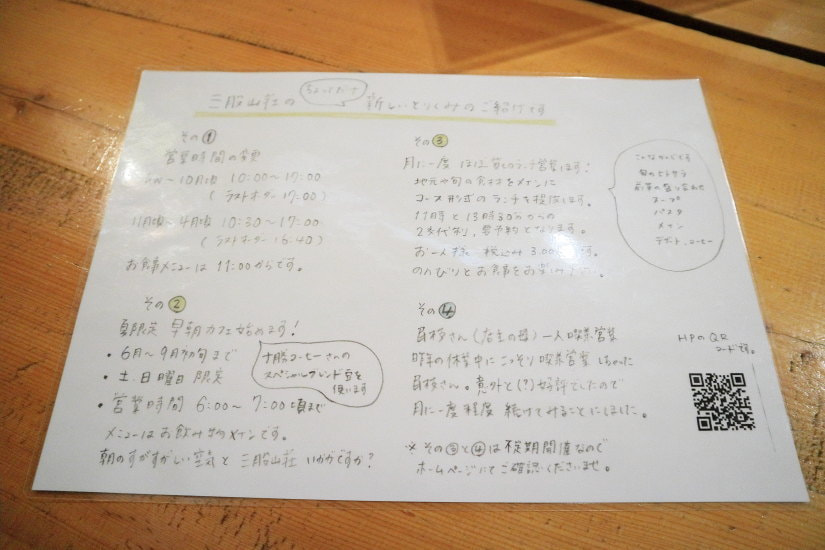 三股山荘の ちょっとだけ 新しいとりくみのご紹介です
その①
営業時間の変更
〜10月中 10:00〜17:00
(ラストオーダー
11月中〜4月中 10:30〜17:00
(ラストオーダー 16:40)
お食事メニューは 11:00からです。
その②
夏限定 早朝カフェ始めます!
• 6月〜9月初旬まで
• 土.日曜日 限定
• 営業時間 6:00〜7:00頃まで
十勝コーヒーさんの
スペシャルブレンド豆を
使います
メニューはお飲み物メインです。
朝のすがすがしい空気と 三股山荘 いかがですか?
その③
月に一度 ほぼ 営業します!
地元や旬の食材をメインに
コース形式のランチを提供します。
11時と13時30分からの
2交代制、要予約となります。
お一人様 税込み 3.00
のんびりとお食事をお楽し
こんなかんじです
旬のポタージュ
前菜の盛り合わせ
スープ
パスタ
メイン
デザート.コーヒー
その④
(店主の母)一人喫茶営業
昨年の休業中にこっそり喫茶営業
さん。意外と(?)好評でしたので
月に一度程度 続けてみることにしました。
※ その③と④は不定期開催なので
ホームページにてご確認くださいませ。
HPのQR
コードです。